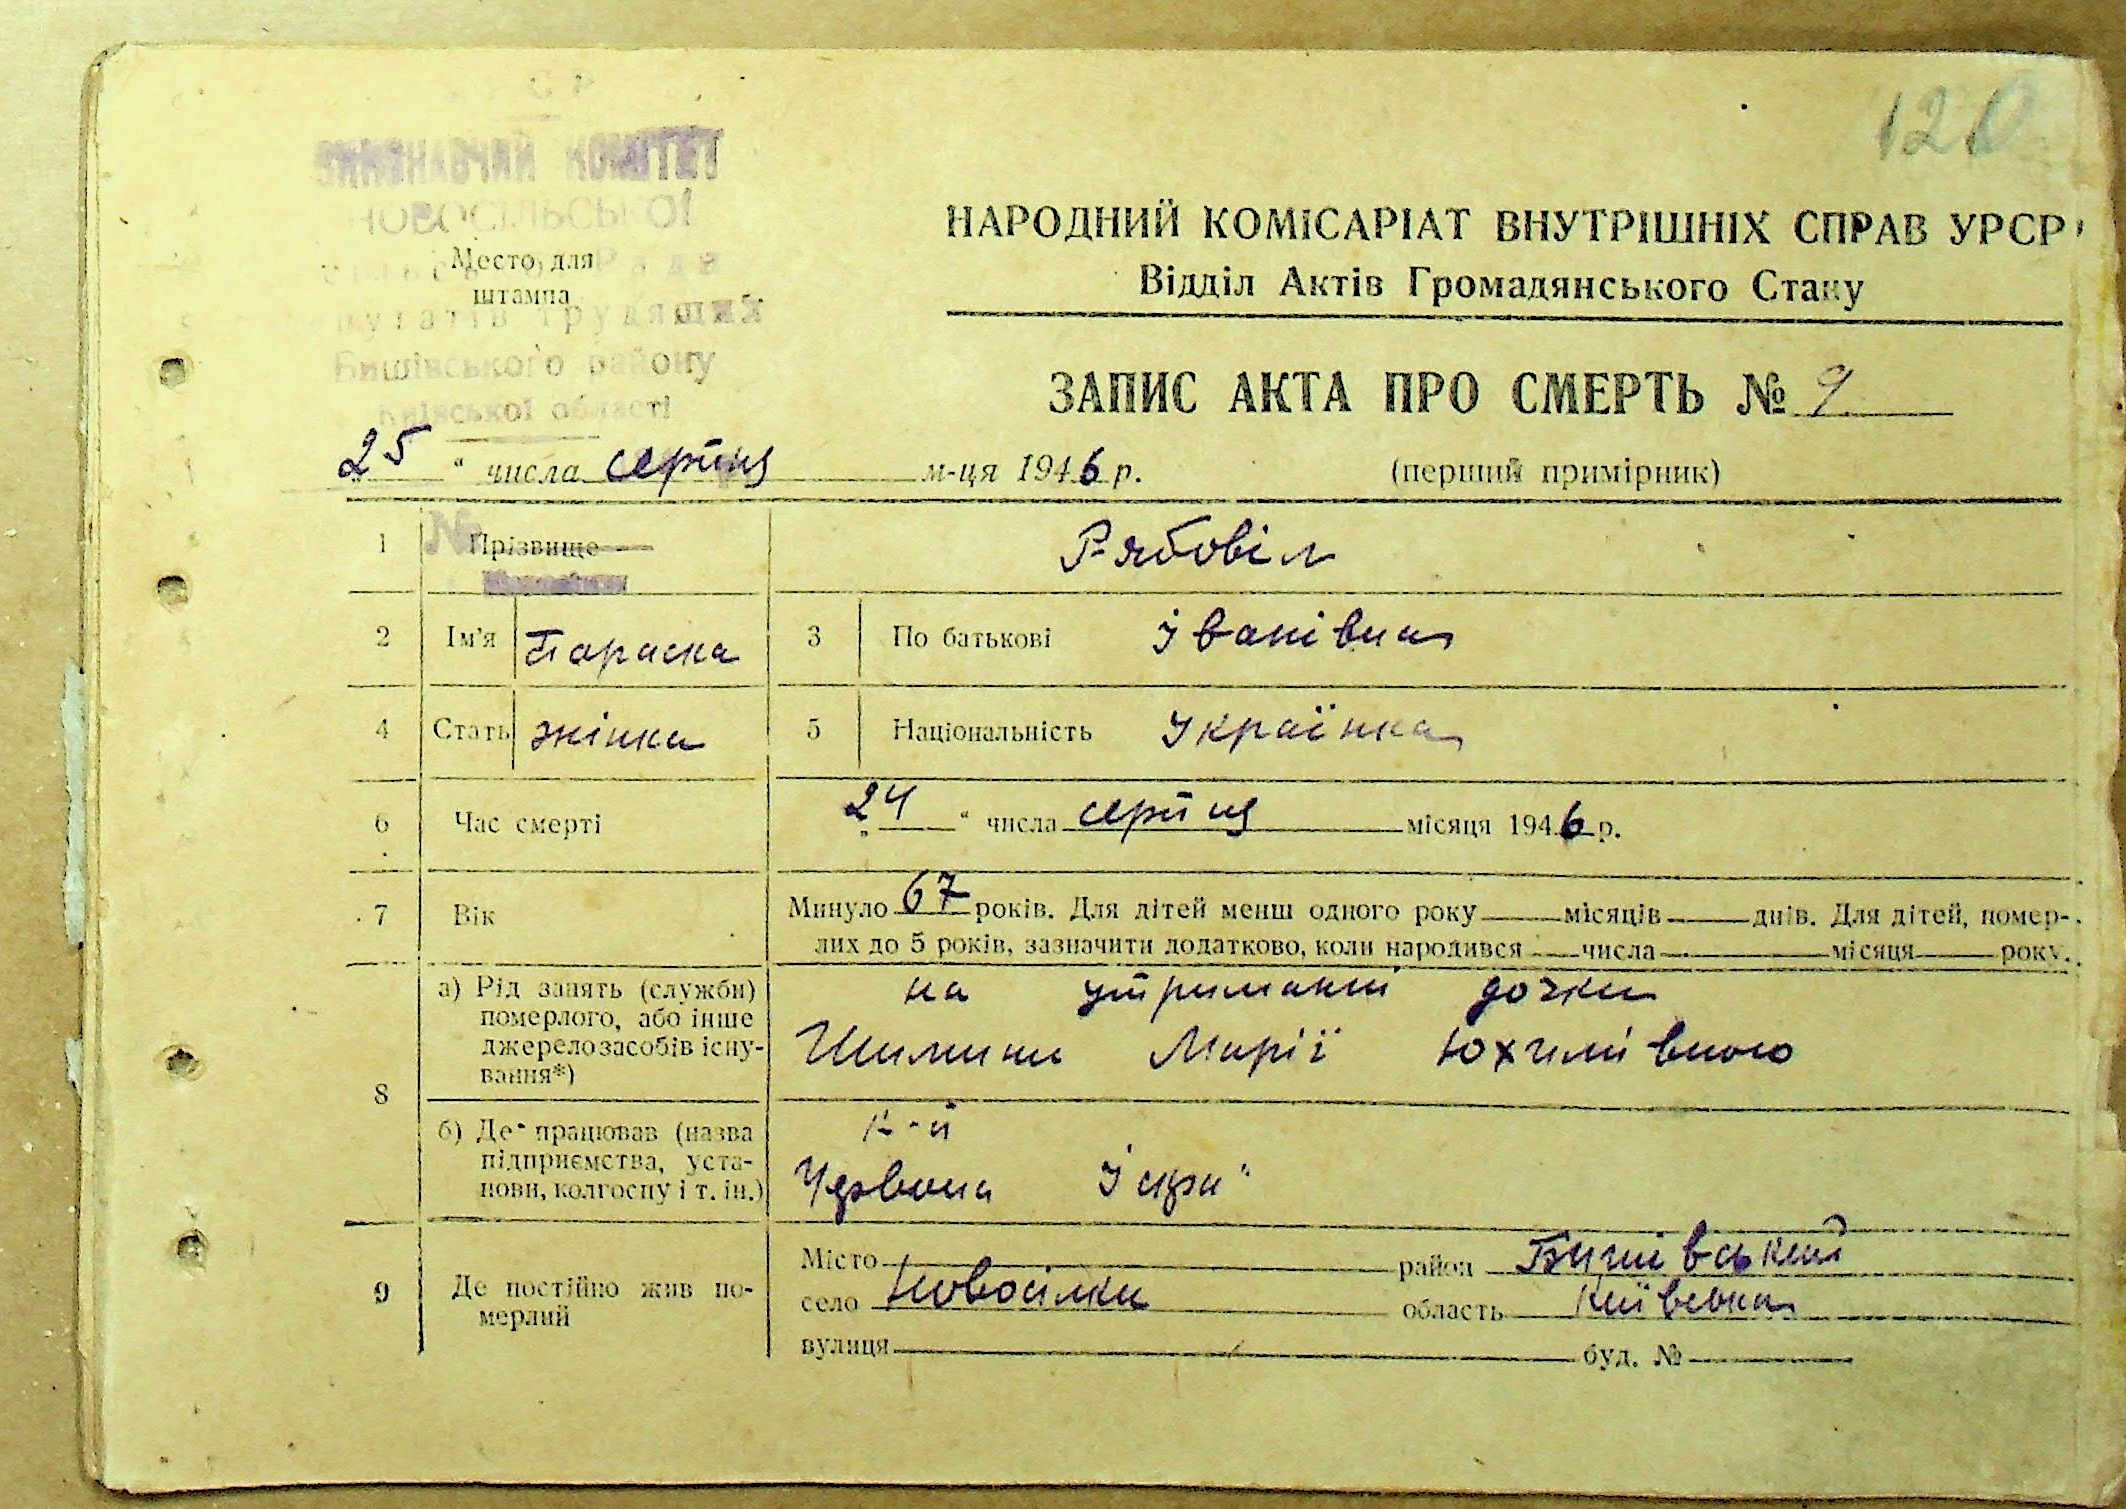 120
КОМІТЕТ
НОВОСІЛЬСЬКОЇ
Место для
штампа
трудящих
Бишівського району
Київської області
НАРОДНИЙ КОМІСАРІАТ ВНУТРІШНІХ СПРАВ УРСР
Відділ Актів Громадянського Стану
ЗАПИС АКТА ПРО СМЕРТЬ № 9
„25“ числа серпня м-ця 1946 р. (перший примірник)
1 Прізвище Рябовіл
2 Ім'я Параска 3 По батькові Іванівна
4 Стать жінка 5 Національність Українка
6 Час смерті „24“ числа серпня місяця 1946 р.
7 Вік Минуло 67 років. Для дітей менш одного року — місяців — днів. Для дітей, помер-
лих до 5 років, зазначити додатково, коли народився — числа — місяця — року.
8 а) Рід занять (служби) померлого, або інше джерело засобів існу-вання*) на утриманні дочки
Марії Юхимівною
б) Де працював (назва підприємства, уста-нови, колгоспу і т. ін.)
Червона
9 Де постійно жив по-мерлий Місто район Бишівський
село Новосілки область Київська
вулиця буд. №